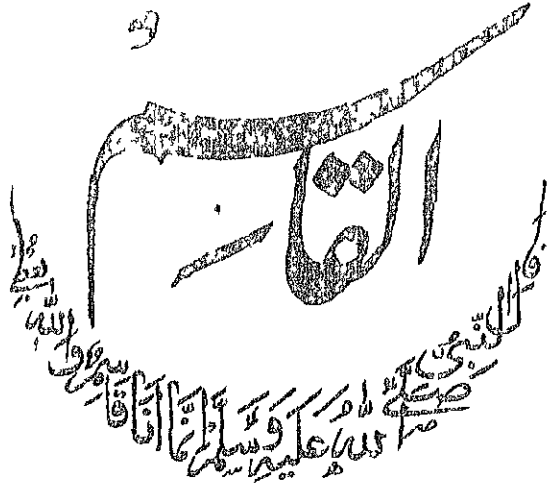 القاسم
قال النبی صلی اللہ علیہ وسلم انما انا قاسم واللہ یعطی